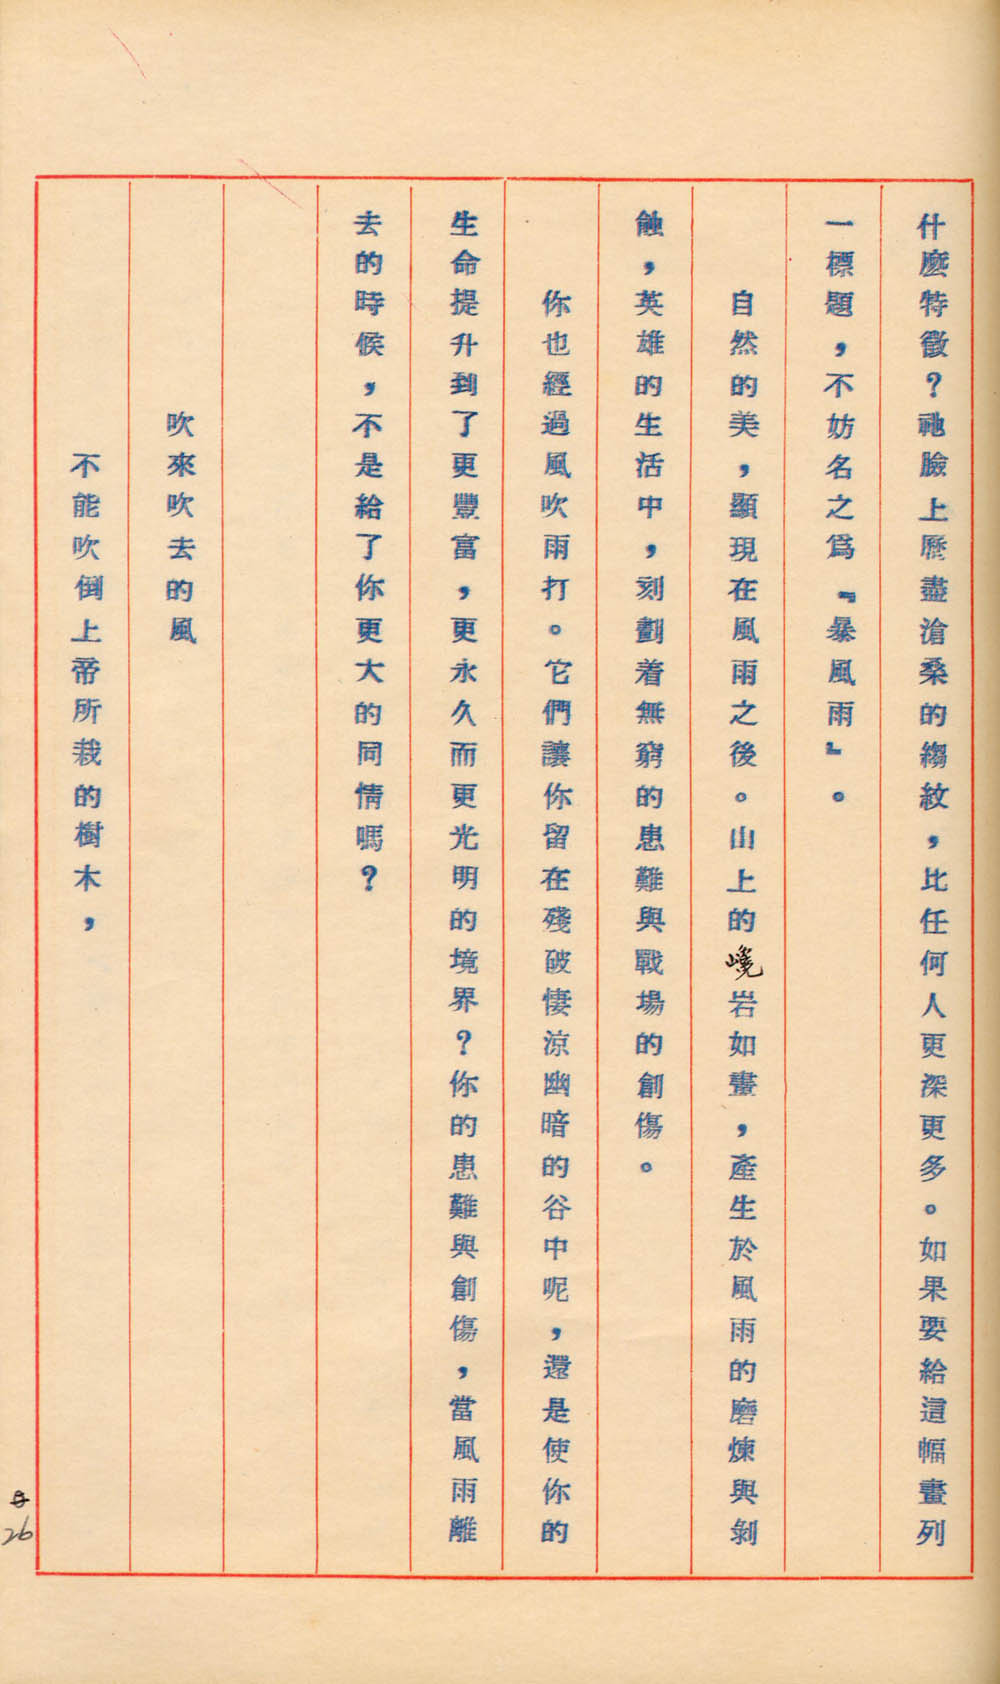 什麽特徵？祂臉上歷盡滄桑的縐紋，比任何人更深更多。如果要給這幅畫列
一標題，不妨名之爲『暴風雨』。
自然的美，顯現在風雨之後。山上的巉岩如畫，產生於風雨的磨煉與剝
蝕，英雄的生活中，刻劃着無窮的患難與戰場的創傷。
你也經過風吹雨打。它們讓你留在殘破悽涼幽暗的谷中呢，還是使你的
生命提升到了更豐富，更永久而更光明的境界？你的患難與創傷，當風雨離
去的時候，不是給了你更大的同情嗎？
吹來吹去的風
不能吹倒上帝所栽的樹木，
26